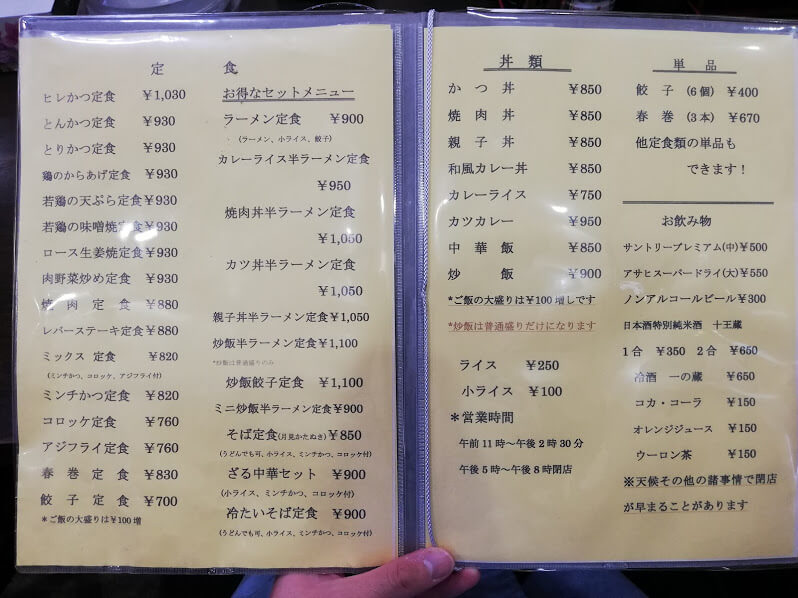 定　食
ヒレかつ定食　¥1,030
とんかつ定食　¥930
とりかつ定食　¥930
鶏のからあげ定食　¥930
若鶏の天ぷら定食¥930
若鶏の味噌焼定食¥930
ロース生姜焼定食¥930
肉野菜炒め定食　¥930
焼　肉　定　食　¥880
レバーステーキ定食¥880
ミックス　定食　¥820
(ミンチかつ、コロッケ、アジフライ付)
ミンチかつ定食　¥820
コロッケ定食　¥760
アジフライ定食　¥760
春　巻　定　食　¥830
餃　子　定　食　¥700
＊ご飯の大盛りは¥100増
お得なセットメニュー
ラーメン定食　¥900
(ラーメン、小ライス、餃子)
カレーライス半ラーメン定食
¥950
焼肉丼半ラーメン定食
¥1,050
カツ丼半ラーメン定食
¥1,050
親子丼半ラーメン定食¥1,050
炒飯半ラーメン定食¥1,100
*炒飯は普通盛りのみ
炒飯餃子定食　¥1,100
ミニ炒飯半ラーメン定食¥900
そば定食(月見かたぬき)¥850
(うどんでも可、小ライス、ミンチかつ、コロッケ付)
ざる中華セット　¥900
(小ライス、ミンチかつ、コロッケ付)
冷たいそば定食　¥900
(うどんでも可、小ライス、ミンチかつ、コロッケ付)
丼　類
か　つ　丼　¥850
焼　肉　丼　¥850
親　子　丼　¥850
和風カレー丼　¥850
カレーライス　¥750
カツカレー　¥950
中　華　飯　¥850
炒　　　飯　¥900
*ご飯の大盛りは¥100増しです
*炒飯は普通盛りだけになります
ライス　¥250
小ライス　¥100
＊営業時間
午前11時～午後2時30分
午後5時～午後8時閉店
単　品
餃　子　(6個)　¥400
春　巻　(3本)　¥670
他定食類の単品も
できます！
お飲み物
サントリープレミアム(中)¥500
アサヒスーパードライ(大)¥550
ノンアルコールビール¥300
日本酒特別純米酒　十王蔵
1合　¥350　2合　¥650
冷酒　一の蔵　¥650
コカ・コーラ　¥150
オレンジジュース　¥150
ウーロン茶　¥150
※天候その他の諸事情で閉店
が早まることがあります